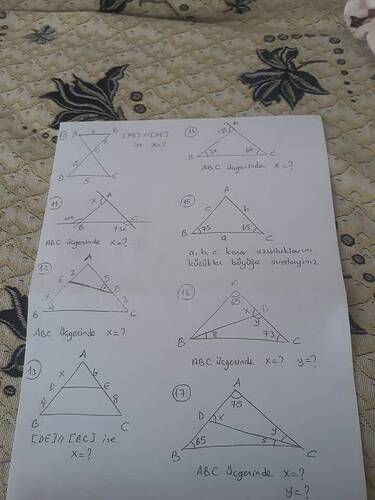 A
B
C
D
E
5
[AB] // [DE]
ise x=?
11
A
x
B
C
136
ABC üçgeninde x=?
12
A
2
5
E
D
x
4
3
B
C
ABC üçgeninde x=?
13
A
x
6
D
E
4
8
B
C
[DE] // [BC] ise
x=?
A
3x
6x
B
C
ABC üçgeninde x=?
15
A
c
b
75
65
B
a
C
a, b, c kenar uzunluklarını
küçükten büyüğe sıralayınız
16
65
D
x
y
8
73
B
C
ABC üçgeninde x=? y=?
17
A
75
D
x
y
65
5
B
C
ABC üçgeninde x=?
y=?